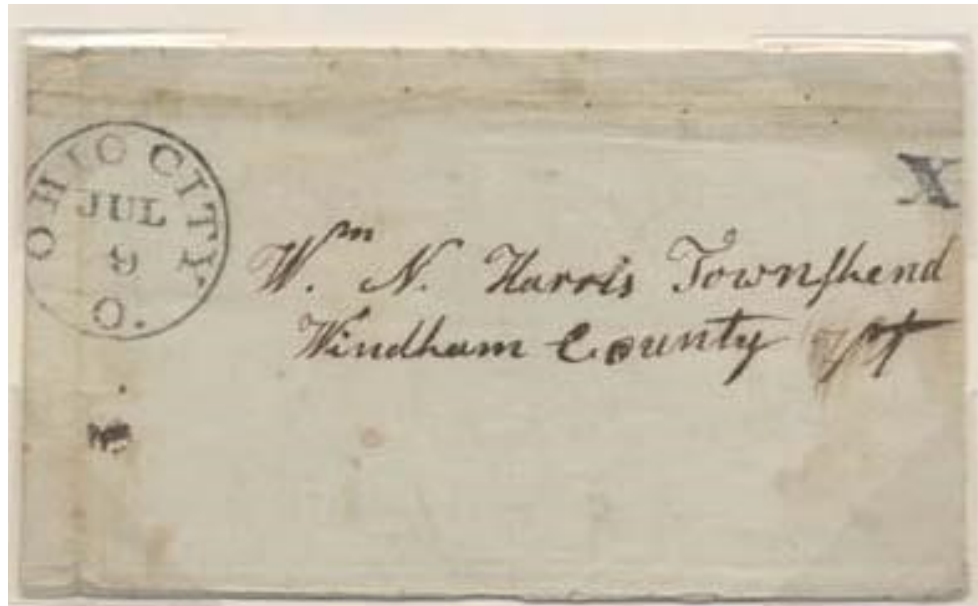 OHIO CITY
JUL
9
O.
X
Wm. N. Harris Townshend
Windham County Vt